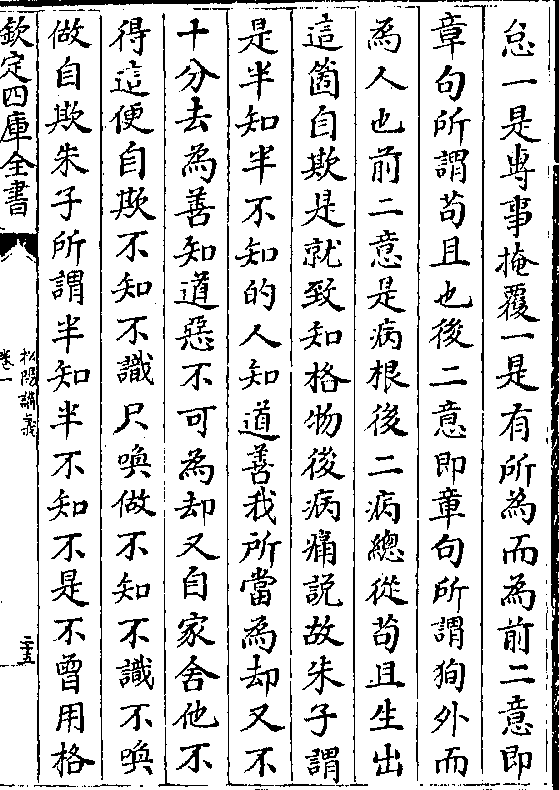 怠一是専事掩覆一是有所為而為前二意即
章句所謂苟且也後二意即章句所謂狥外而
為人也前二意是病根後二病總從苟且生出
這箇自欺是就致知格物後病痛説故朱子謂
是半知半不知的人知道善我所當為却又不
十分去為善知道惡不可為却又自家舍他不
得這便自欺不知不識只喚做不知不識不喚
做自欺朱子所謂半知半不知不是不曽用格
欽定四庫全書
松陽講義
卷一
二十五